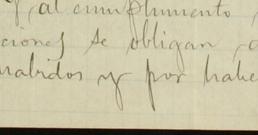 , al cumplimiento,
ciones se obligan,
habidos y por habe